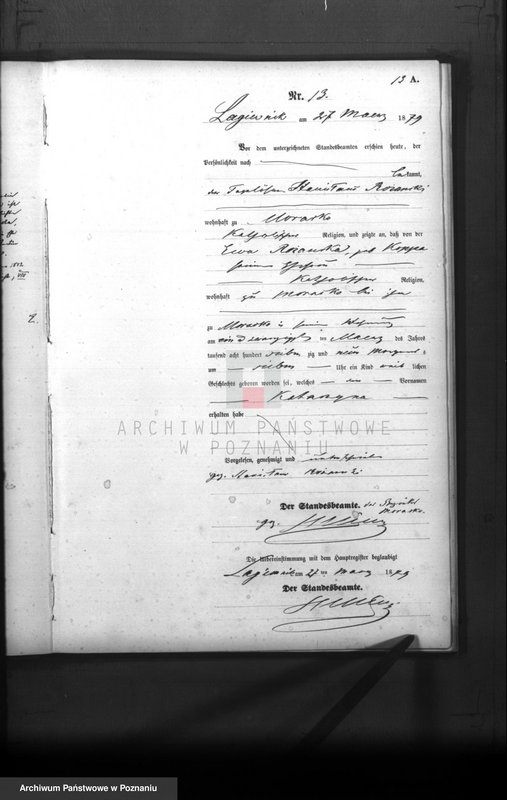 13 A.
Nr. 13.
Lagiewnik am 27 Maerz 1879
Vor dem unterzeichneten Standesbeamten erschien heute, der
Persönlichkeit nach
bekannt,
der Stanislaus Rozanski
wohnhaft zu Morasko
Katholischer Religion, und zeigte an, daß von der
Ewa Rozanska, geb
seiner Ehefrau
Katholischer Religion,
wohnhaft zu Morasko bei ihm
zu Morasko in seiner Wohnung
am ein und zwanzigsten Maerz des Jahres
tausend acht hundert sieben zig und neun Morgens
um sieben Uhr ein Kind weib lichen
Geschlechts geboren worden sei, welches den Vornamen
Katarzyna
erhalten habe
Vorgelesen, genehmigt und unterschrieben
gez.
Der Standesbeamte. des Bezirks
Morasko.
gez.
Die Uebereinstimmung mit dem Hauptregister beglaubigt
Lagiewnik am 27 ten Maerz 1879
Der Standesbeamte.
ARCHIWUM PAŃSTWOWE
W POZNANIU
Archiwum Państwowe w Poznaniu